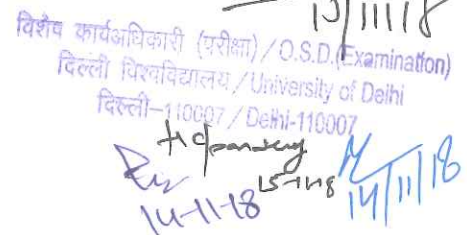 15/11/18
विशेष कार्यअधिकारी (परीक्षा) / O.S.D. (Examination)
दिल्ली विश्वविद्यालय / University of Delhi
दिल्ली-110007 / Delhi-110007
15-11-18
14-11-18
14/11/18